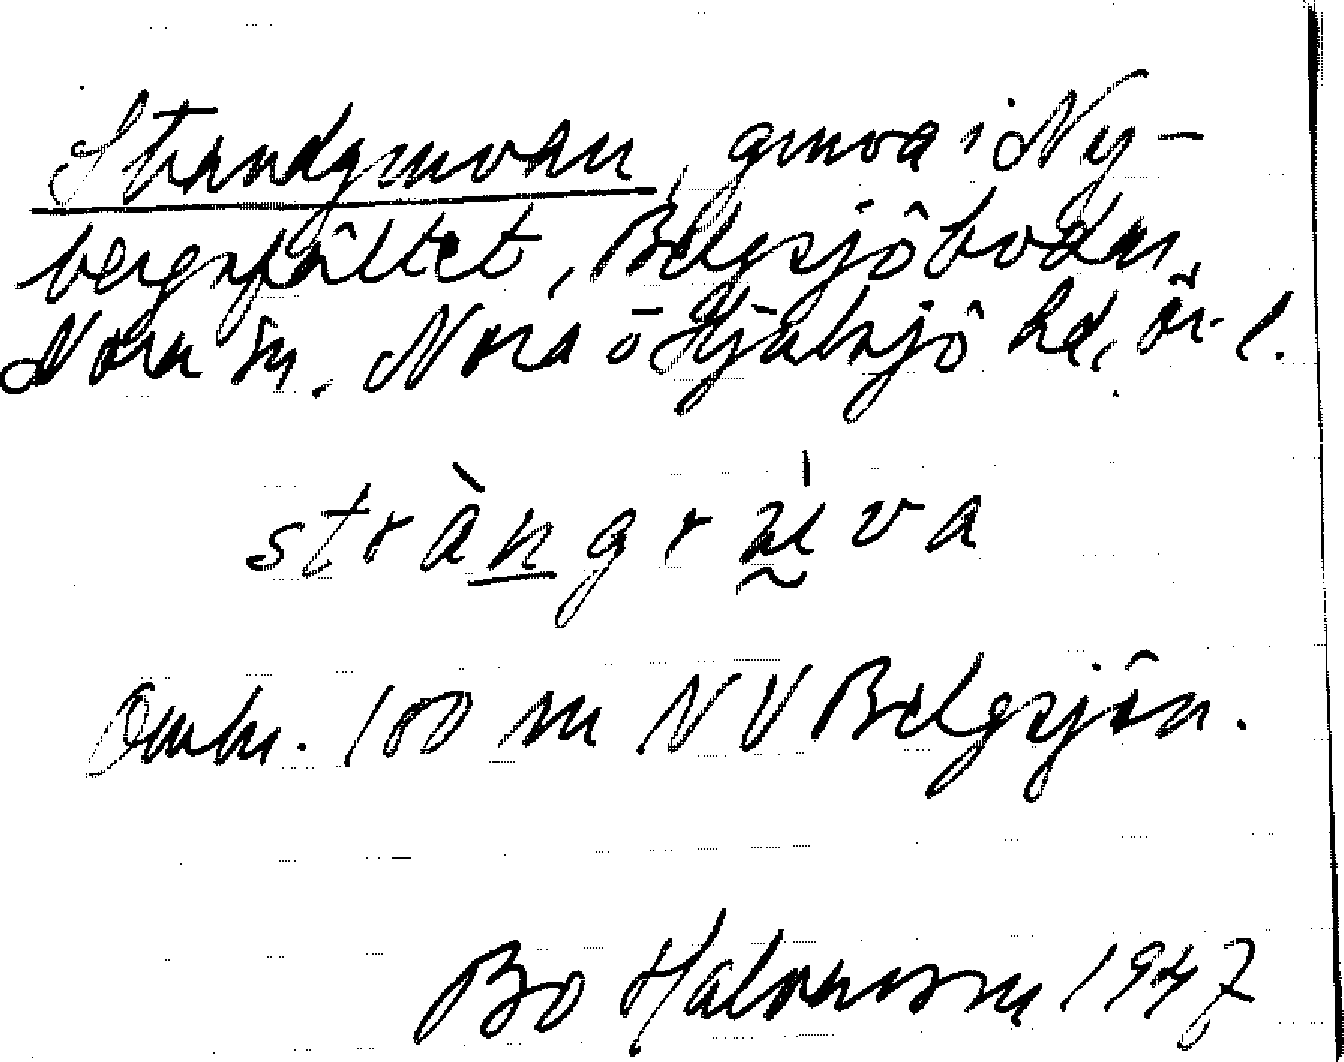 Strandgruvan, gruva i Ny-
bergsfältet, Bälgsjöbodar,
Nora sn. Nora o Hjulsjö hd, Ör. l.
stràngrúva
Omkr. 100 m NV Bälgsjön.
Bo Halvarsson 1947